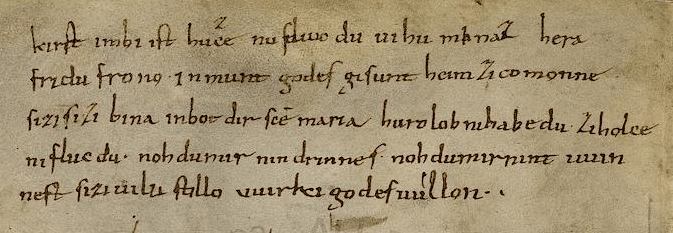 kirst imbi ist hucze nu fluic du uihu minaz hera
fridu frono · in munt godes gisunt heim zi comonne
sizi sizi bina inbot dir scē maria hurolob ni habe du · zi holce
ni fluc du · noh du mir nindrinnes · noh du mir nintuuin
nest sizi uilu stillo uuirki godes uuillon · .